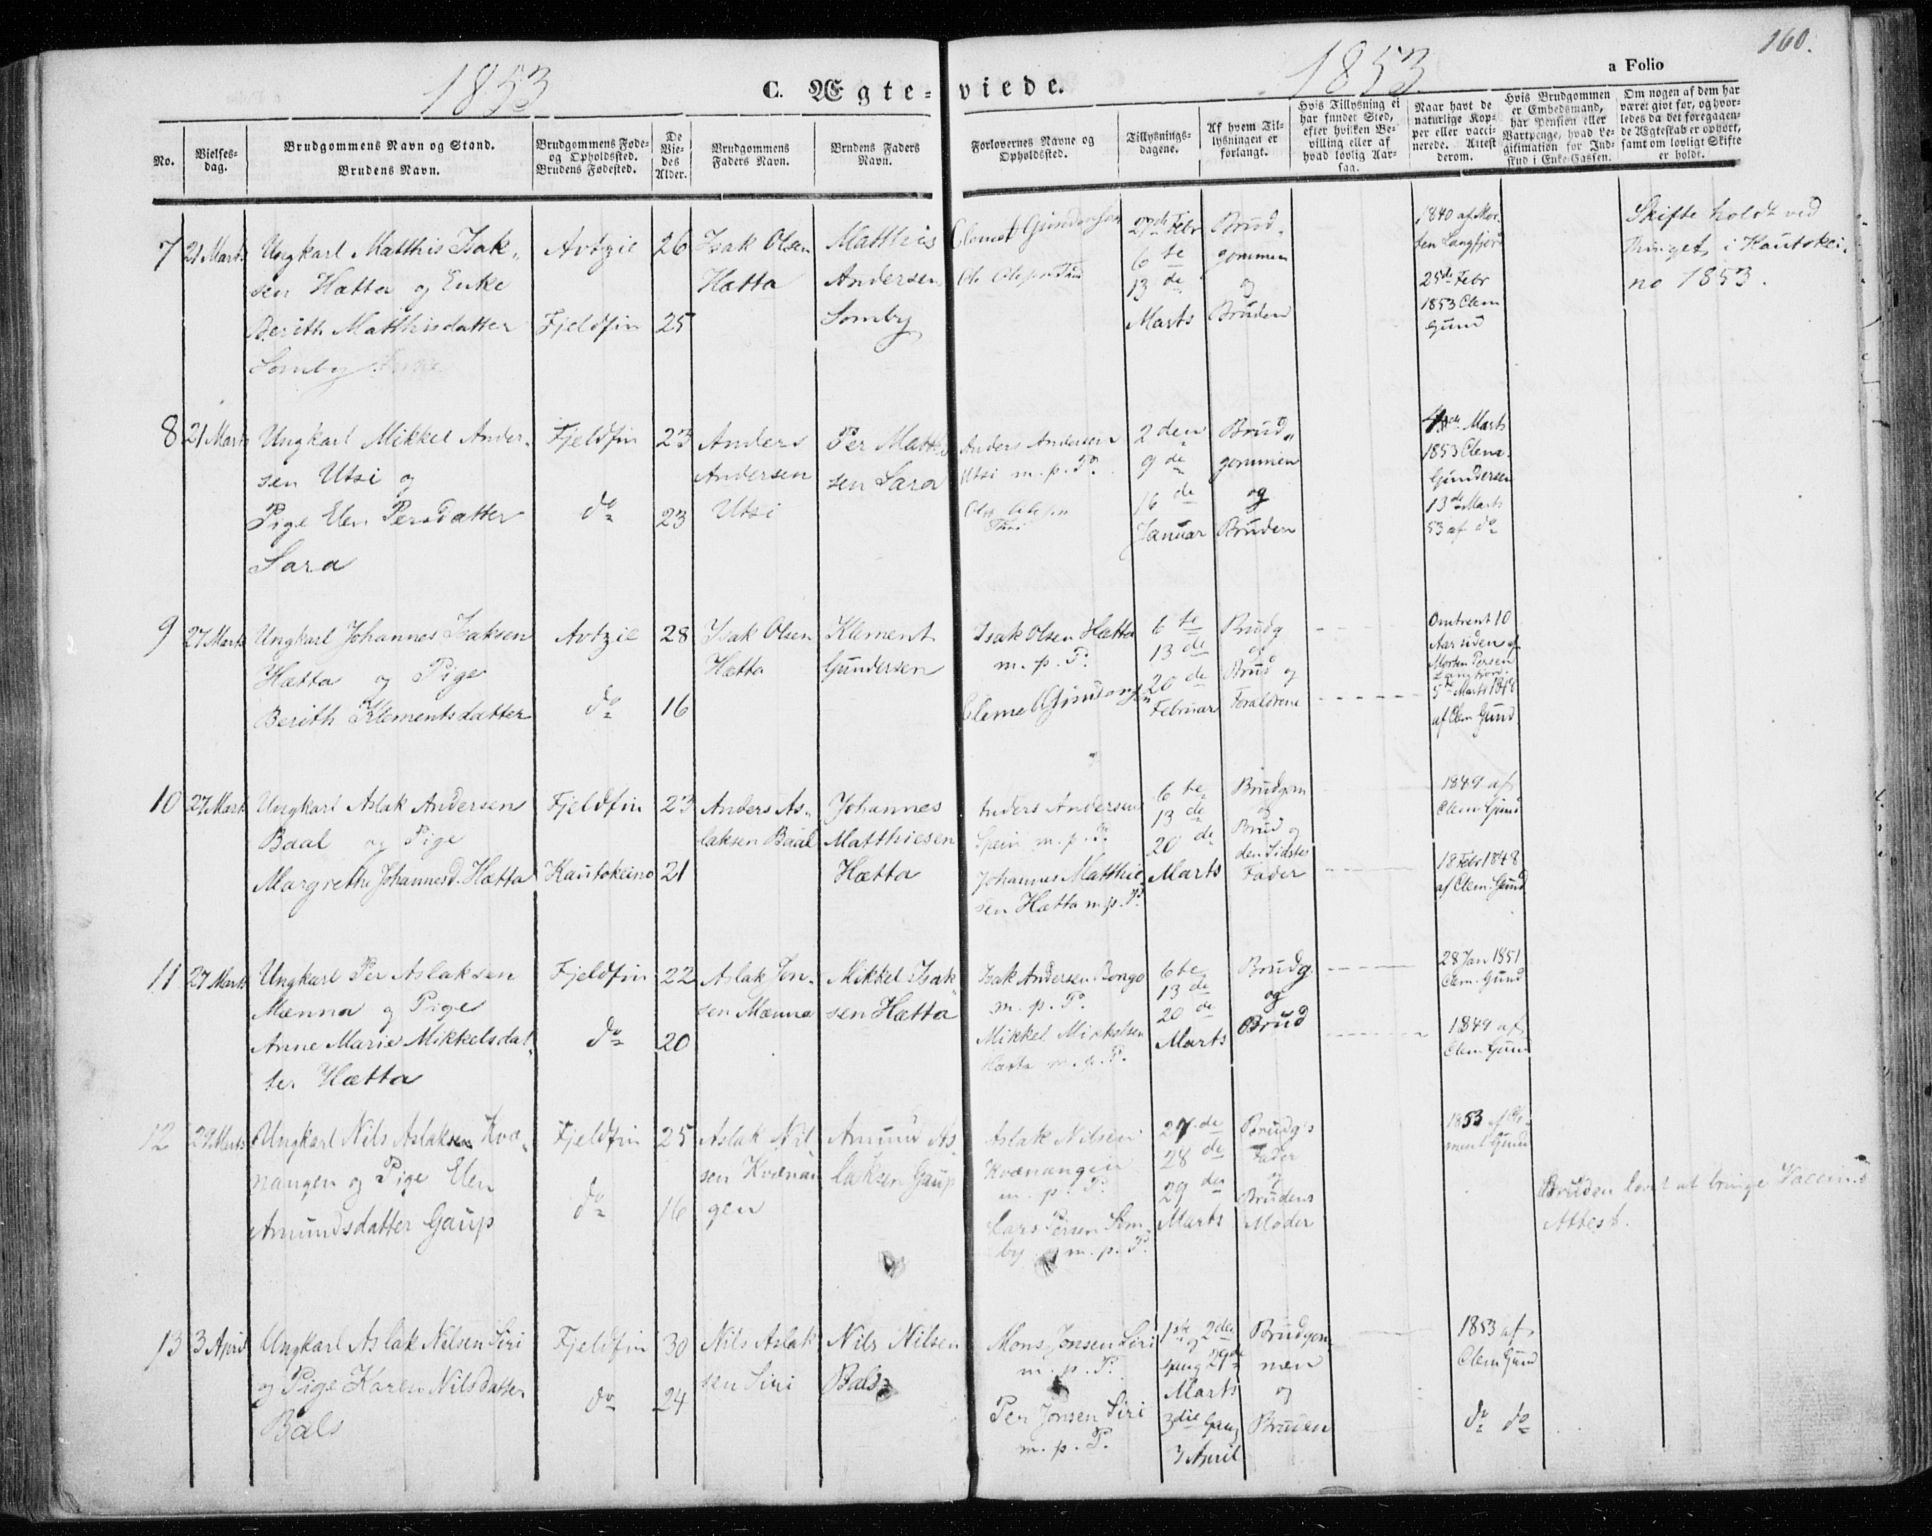 160.
1853
C. Ægte-viede.
1853.
a Folio
No.
Vielses-
dag.
Brudgommens Navn og Stand.
Brudens Navn.
Brudgommens Føde-
og Opholdssted.
Brudens Fødested.
De
Vie-
des
Alder.
Brudgommens
Faders Navn.
Brudens Faders
Navn.
Forlovernes Navne og
Opholdssted.
Tillysnings-
dagene.
Af hvem Til-
lysningen er
forlangt.
Hvis Tillysning ei
har fundet Sted,
efter hvilken Be-
villing eller af
hvad lovlig Aar-
sag.
Naar havt de
naturlige Kop-
per eller vacci-
nerede. Attest
derom.
Hvis Brudgommen
er Embedsmand,
har Pension eller
Vartpenge, hvad Le-
gitimation for Ind-
skud i Enke-Cassen.
Om nogen af dem har
været givt før, og hvor-
ledes da det foregaaen-
de Ægteskab er ophørt,
samt om lovligt Skifte
er holdt.
7
21 Marts
Ungkarl Matthis Isak-
sen Hætta og Enke
Berith Matthisdatter
Somby
Avtzie
Fjeldfin
26
25
Isak Olsen
Hætta
Matthis
Andersen
Somby
Clemet Gundersen
27de Febr
6te
13de
Marts
Brud-
gommen
og
Bruden
1840 af Mor-
ten Langfjord
25de Febr
1853 Clem
Gund
Skifte holdt ved
Thinget i Kautokei-
no 1853.
8
21 Marts
Ungkarl Mikkel Ander-
sen Utsi og
Pige Elen Persdatter
Sara
Fjeldfin
do
23
23
Anders
Andersen
Utsi
Per Matthi
sen Sara
Anders Andersen
Utsi m. p. P.
2den
9de
16de
Januar
Brud-
gommen
og
Bruden
Marts
1853 Clem.
Gundersen
13de Marts
53 af do
9
27 Marts
Ungkarl Johannes Isaksen
Hætta og Pige
Berith Klementsdatter
Avtzie
do
28
16
Isak Olsen
Hætta
Klement
Gundersen
Isak Olsen Hætta
m. p. P.
Clemet Gundersen
6te
13de
20de
Februar
Brudg
og
Brud og
Forældrene
Omtrent 10
Aar siden af
Morten Persen
Langfjord
5te Marts 1848
af Clem Gund
10
27 Marts
Ungkarl Aslak Andersen
Baal og Pige
Margrethe Johannesd. Hætta
Fjeldfin
Kautokeino
23
21
Anders As-
laksen Baal
Johannes
Matthiesen
Hætta
Anders Andersen
Spein m. p. P.
Johannes Matthie-
sen Hætta m. p. P.
6te
13de
20de
Marts
Brudgom
og
Brud og
den Sidstes
Fader
1849 af
Clem. Gund
18 Febr 1848
af Clem. Gund
11
27 Marts
Ungkarl Per Aslaksen
Mænna og Pige
Anne Marie Mikkelsdat-
ter Hætta
Fjeldfin
do
22
20
Aslak Jon-
sen Mænna
Mikkel Isak-
sen Hætta
Isak Andersen Bongo
m. p. P.
Mikkel Mikkelsen
Hætta m. p. P.
6te
13de
20de
Marts
Brudg.
og
Brud
28 Jan 1851
Clem. Gund
1849 af
Clem. Gund
12
29 Marts
Ungkarl Nils Aslaksen Kvæ-
nangen og Pige Elen
Amundsdatter Gaup
Fjeldfin
do
25
16
Aslak Nil-
sen Kvænan
gen
Amund As-
laksen Gaup
Aslak Nilsen
Kvænangen
m. p. P.
Lars Persen Som-
by m. p. P.
27de
28de
29de
Marts
Brudg's
Fader
og
Brudens
Moder
1853 af Cle-
ment Gund
Bruden lovet at bringe Vaccine
Attest.
13
3 April
Ungkarl Aslak Nilsen Siri
og Pige Karen Nilsdatter
Bals
Fjeldfin
do
30
24
Nils Aslak
sen Siri
Nils Nilsen
Bals
Mons Jonsen Siri
m. p. P.
Per Jonsen Siri
m. p. P.
1ste og 2den
Gang 29de
Marts
3die Gang
3 April
Brudgom-
men
og
Bruden
1853 af
Clem Gund
do do